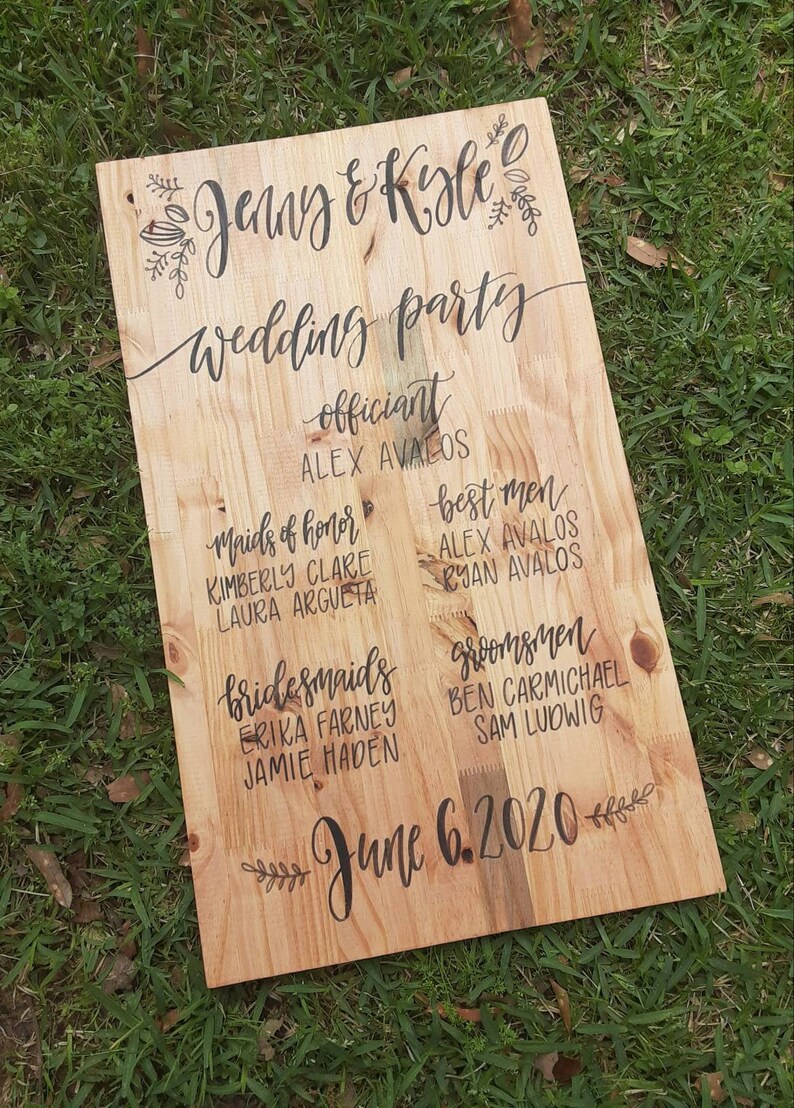 Jenny & Kyle
wedding party
officiant
ALEX AVALOS
maids of honor
KIMBERLY CLARE
LAURA ARGUETA
best men
ALEX AVALOS
RYAN AVALOS
bridesmaids
ERIKA FARNEY
JAMIE HADEN
groomsmen
BEN CARMICHAEL
SAM LUDWIG
June 6.2020